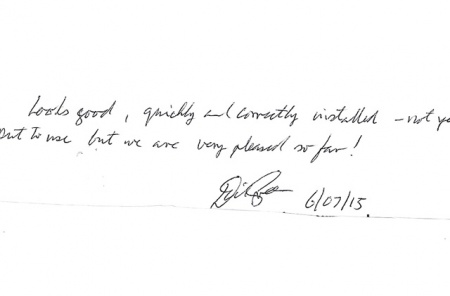 Looks good, quickly and correctly installed – not ye
put to use but we are very pleased so far!
6/07/15.